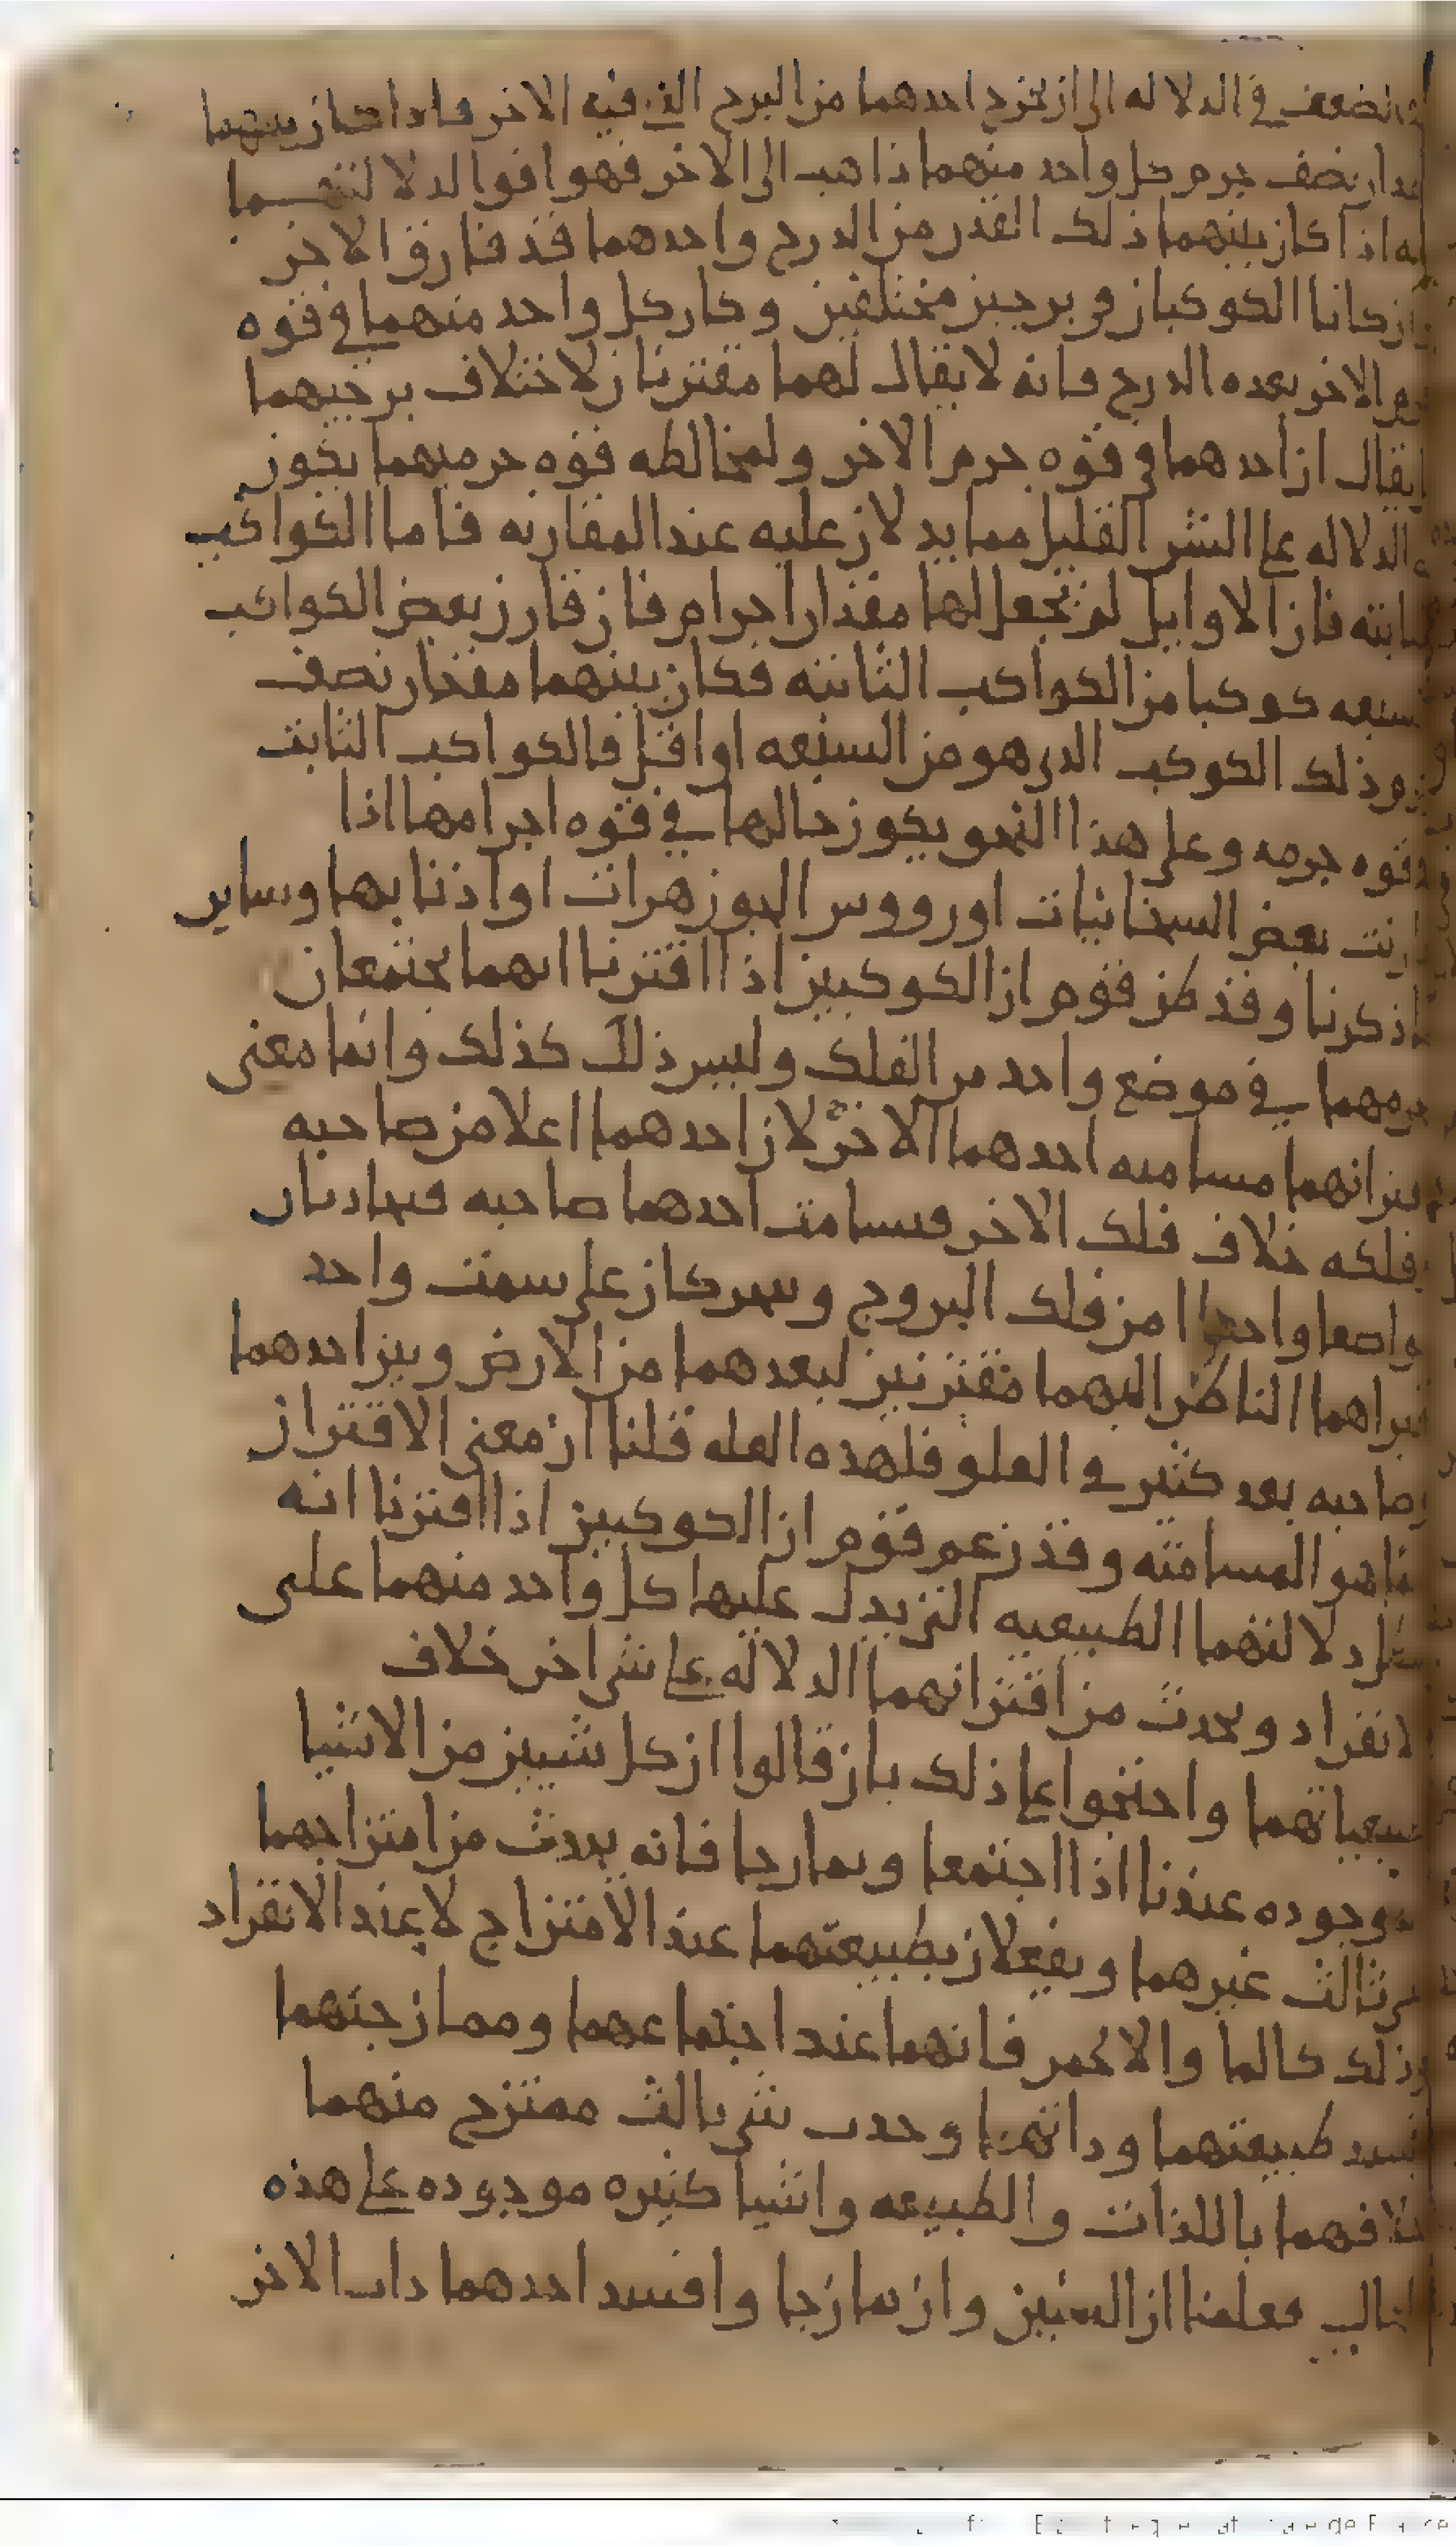 تضعف في الدلاله الى ان يخرج احدهما من البرج الذي فيه الاخر فاذا كان بينهما
نصف جرم كل واحد منهما ذاهب الى الاخر فهو اقوا لدلالتهما
اذا كان بينهما ذلك القدر من الدرج واحدهما قد فارق الاخر
كانا الكوكبان في برجين مختلفين وكان كل واحد منهما في قوه
الاخر بعده الدرج فانه لا يقال لهما مقترنان لاختلاف برجيهما
يقال ان احدهما في قوه جرم الاخر ولمخالطه قوه جرميهما يكون
الدلاله على الشي القليل مما يدلان عليه عند المقارنه فاما الكواكب
فان الاوايل لم تجعل لها مقدار اجرام فان قارن بعض الكواكب
السبعه كوكبا من الكواكب الثابته فكان بينهما مقدار نصف
وذلك الكوكب الذي هو من السبعه او اقل فالكواكب الثابت
قوه جرمه وعلى هذا النحو يكون حالها في قوه اجرامها اذا
بعض السحابيات او رووس الجوزهرات او اذنابها وساير
ذكرنا وقد ظن قوم ان الكوكبين اذا اقترنا انهما يجتمعان
في موضع واحد من الفلك وليس ذلك كذلك وانما معنى
مسامته احدهما الاخر لان احدهما اعلا من صاحبه
فلكه خلاف فلك الاخر فيسامت احدهما صاحبه فيحاذيان
واحدا من فلك البروج ويتحركان على سمت واحد
فيراهما الناظر اليهما مقترنين لبعدهما من الارض وبين احدهما
صاحبه بعد كثير في العلو فلهذه العله قلنا ان معنى الاقتران
هو المسامته وقد زعم قوم ان الكوكبين اذا اقترنا انه
دلالتهما الطبيعيه التي يدل عليها كل واحد منهما على
الانفراد ويحدث من اقترانهما الدلاله على شي اخر خلاف
واحتجوا على ذلك بان قالوا ان كل شيين من الاشيا
موجوده عندنا اذا اجتمعا وتمازجا فانه يحدث من امتزاجهما
ثالث غيرهما ويفعلان بطبيعتهما عند الامتزاج لا عند الانفراد
وذلك كالما والاخمر فانهما عند اجتماعهما وممازجتهما
طبيعتهما وذاتهما وحدث شي ثالث ممتزج منهما
باللذات والطبيعه واشيا كثيره موجوده على هذه
فعلمنا ان الشيين وان تمازجا وافسد احدهما ذات الاخر